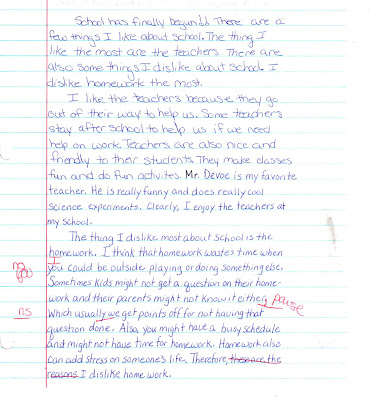 School has finally begun!! There are a
few things I like about school. The thing I
like the most are the teachers. There are
also some things I dislike about school. I
dislike homework the most.
I like the teachers because they go
out of their way to help us. Some teachers
stay after school to help us if we need
help on work. Teachers are also nice and
friendly to their students. They make classes
fun and do fun activites. Mr. Devoe is my favorite
teacher. He is really funny and does really cool
science experiments. Clearly, I enjoy the teachers at
my school.
The thing I dislike most about school is the
homework. I think that homework wastes time when
you could be outside playing or doing something else.
Sometimes kids might not get a question on their home-
work and their parents might not know it either, pause
ns Which usually we get points off for not having that
question done. Also, you might have a busy schedule
and might not have time for homework. Homework also
can add stress on someone's life. Therefore, these are the
reasons I dislike home work.